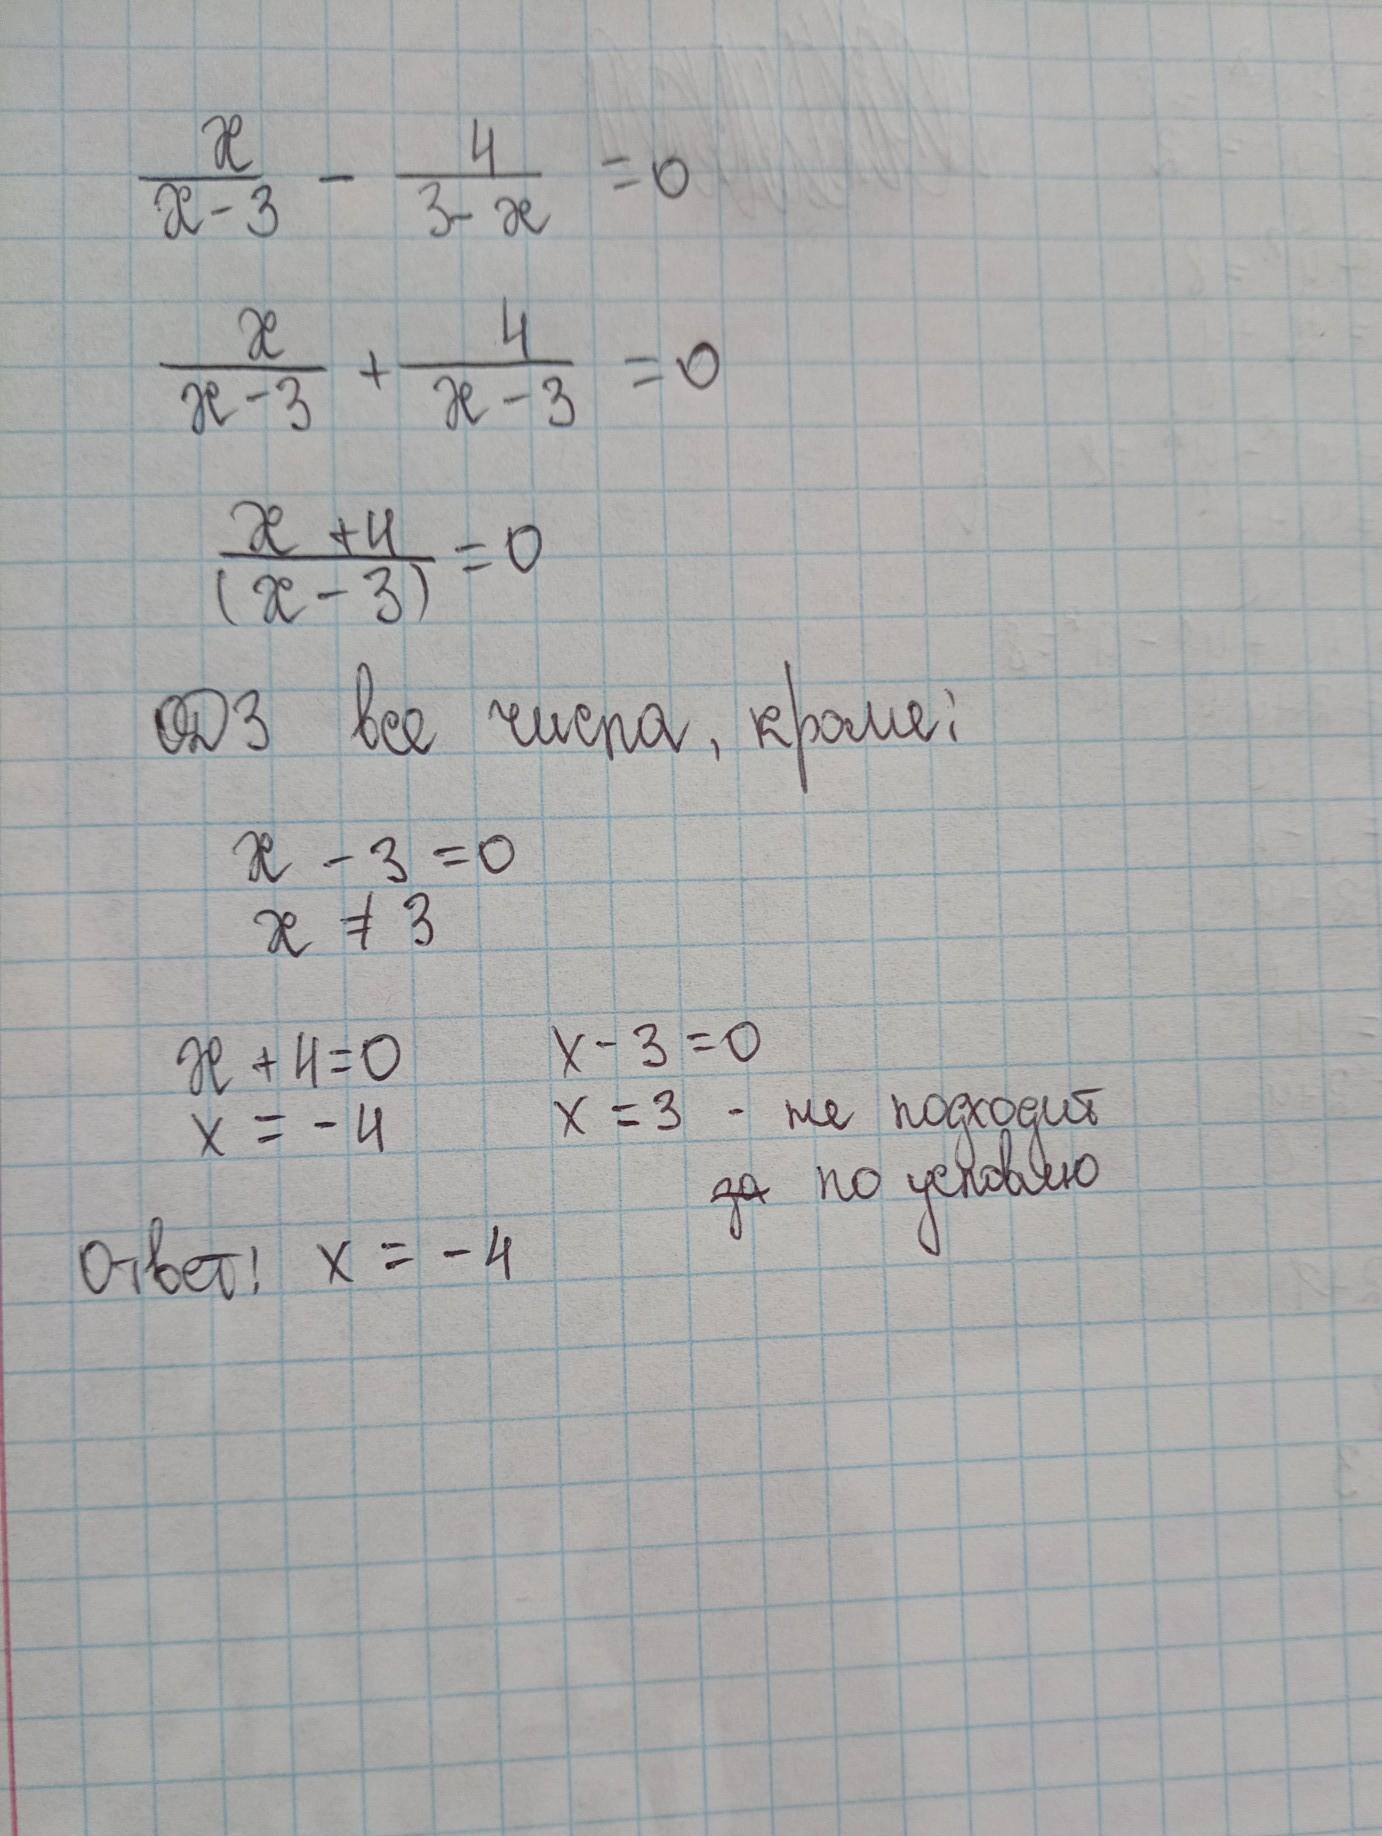 x/(x-3) - 4/(3-x) = 0
x/(x-3) + 4/(x-3) = 0
x+4/(x-3) = 0
ОДЗ все числа, кроме:
x - 3 = 0
x ≠ 3
x + 4 = 0 x - 3 = 0
x = -4 x = 3 - не подходит
за по условию
Ответ: x = -4